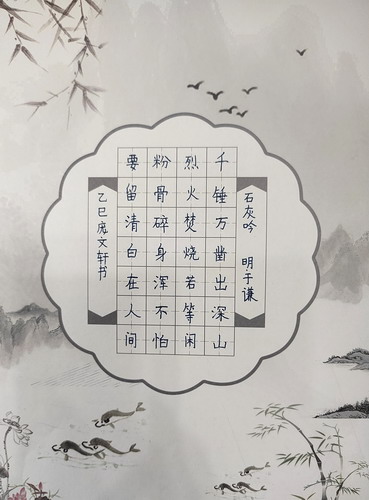 石灰吟 明于谦
千锤万凿出深山
烈火焚烧若等闲
粉骨碎身浑不怕
要留清白在人间
乙巳文轩书